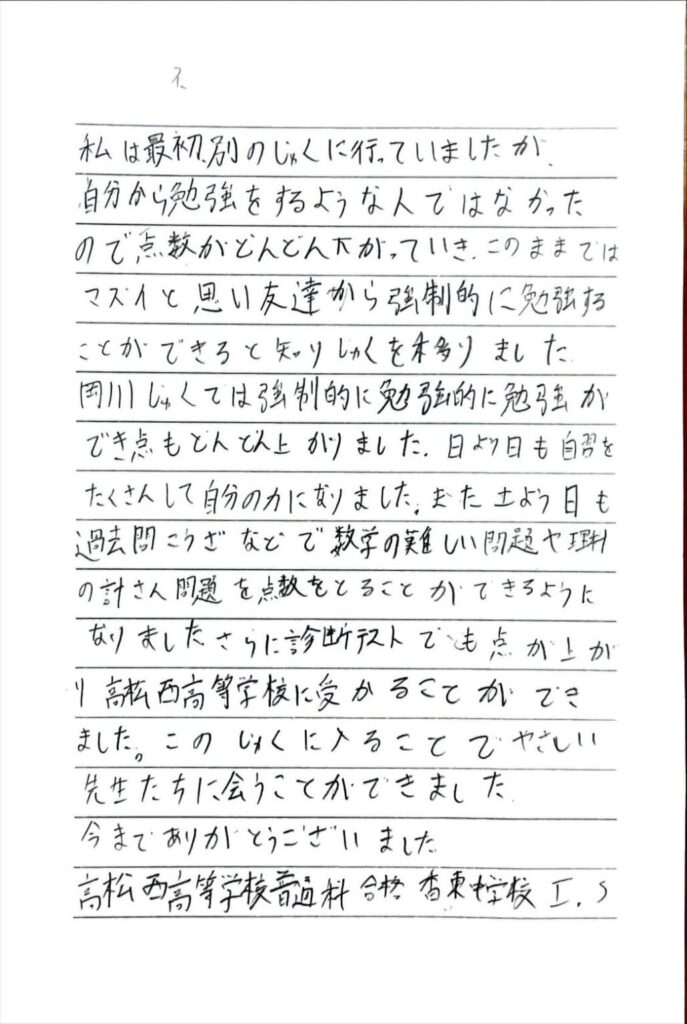 私は最初、別のじゅくに行っていましたが、
自分から勉強をするような人ではなかった
ので点数がどんどん下がっていき、このままでは
マズイと思い友達から強制的に勉強する
ことができると知りじゅくを移りました
岡川じゅくでは強制的に勉強的に勉強が
でき点もどんどん上がりました。日より日も自習を
たくさんして自分の力になりました。また土よう日も
過去問こうざなどで数学の難しい問題や理科
の計さん問題を点数をとることができるように
なりましたさらに診断テストでも点が上が
り高松西高等学校に受かることができ
ました。このじゅくに入ることでやさしい
先生たちに会うことができました
今までありがとうございました
高松西高等学校普通科 合格 香東中学校 I.S